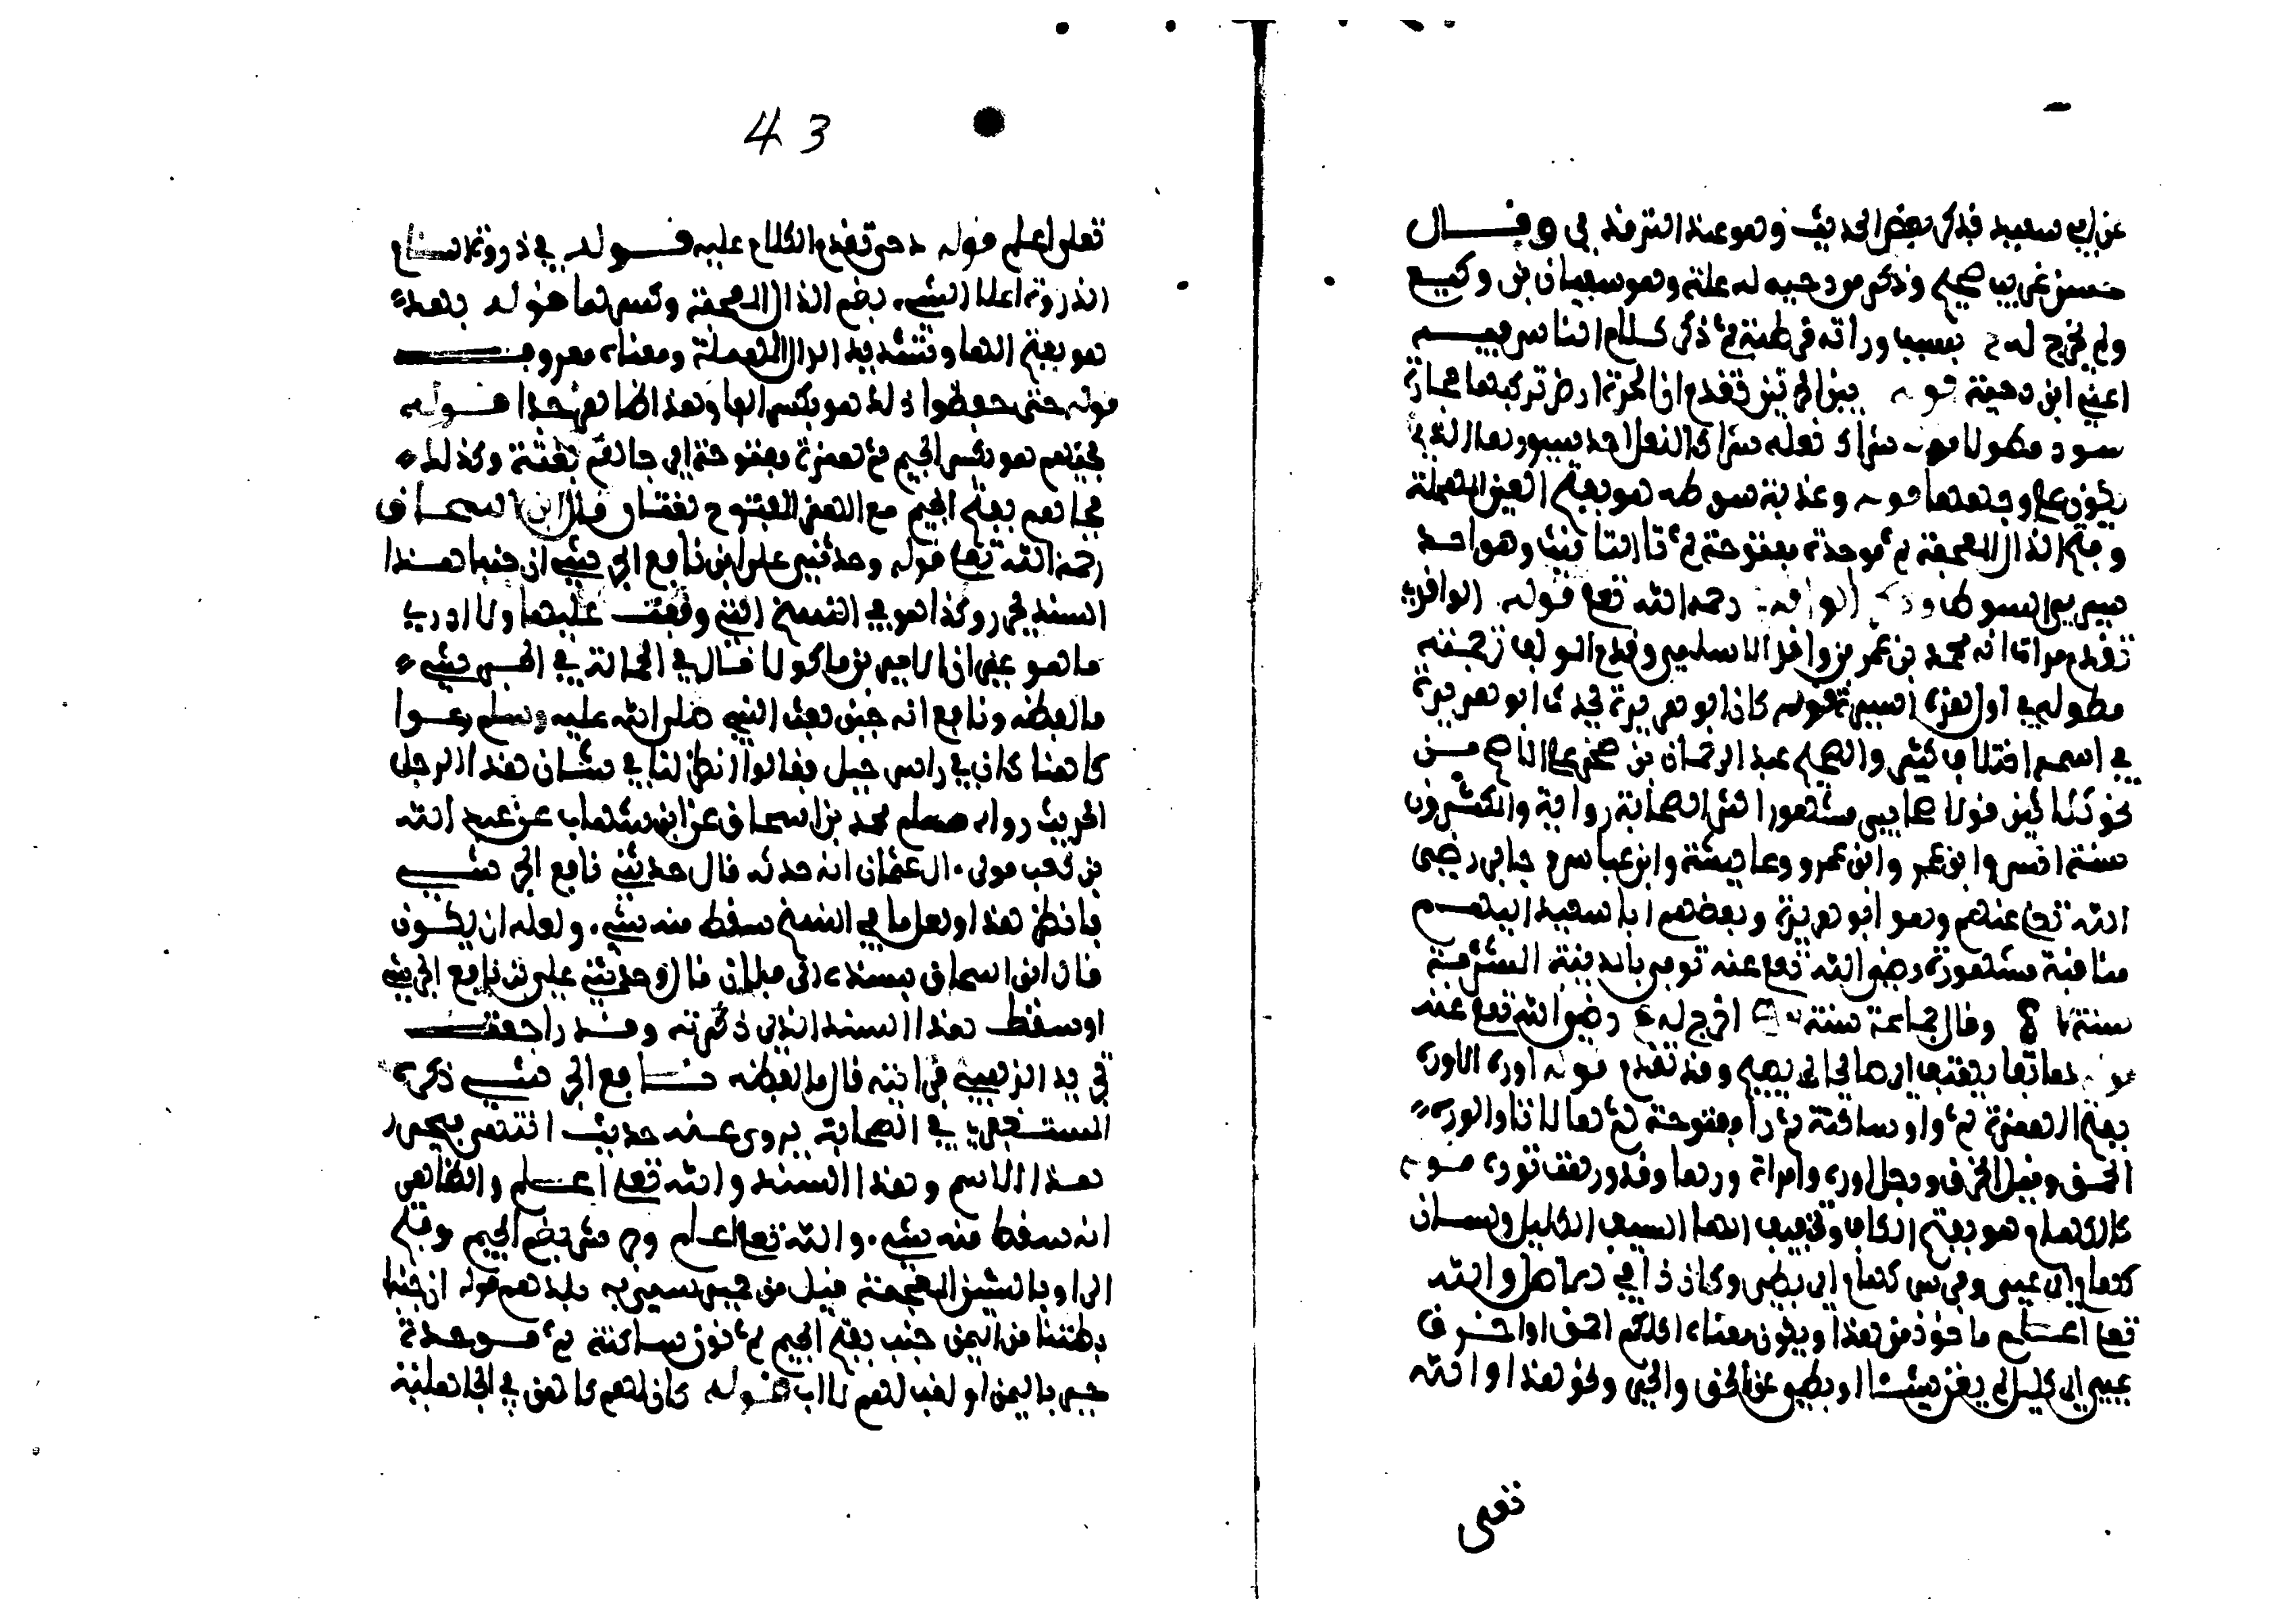 عن ابي سعيد فذكر بعض الحديث وهو عند الترمذي وقال
حسن غريب صحيح وذكر من وجهه له علة وهو سفيان بن وكيع
ولم يخرج له بسبب وراقه قرطمة ثم ذكر كلام الناس فيه
اعني ابن دحية قوله بين الحرتين تقدم ان الحرة ارض تركبها حجارة
سود مطولا قوله شراك نعله شراك النعل احد سيورها التي
يكون على وجهها قوله وعذبة سوطه هو بفتح العين المهملة
وفتح الذال المعجمة ثم موحدة مفتوحة ثم تا التانيث وهو احد
سيري السوط رحمه الله تعلى قوله الواقدي
تقدم مرات انه محمد بن عمر بن واقد الاسلمي وقدم المولف ترجمته
مطولة في اول هذه السيرة قوله كان ابو هريرة يحدث ابو هريرة
في اسمه اختلاف كثير والصحيح عبد الرحمان بن صخر على الاصح من
نحو ثلاثين قولا صحابي مشهور اكثر الصحابة رواية والمكثرون
ستة انس وابن عمر وابن عمرو وعايشة وابن عباس جابر رضي
الله تعلى عنهم وهو ابو هريرة وبعضهم ابا سعيد اليهم
مناقبه مشهورة رضي الله تعلى عنه توفي بالمدينة المشرفة
سنة وقال جماعة سنة اخرج له ع رضي الله تعلى عنه
بفتح الهمزة ثم واو ساكنة ثم را مفتوحة ثم ها التا والوره
الحمق وقيل الخرق ورجل اوره وامراة ورها وقد ورهت توره قوله
كالكهام هو بفتح الكاف وتخفيف الها السيف الكليل ولسان
كهام اي عيي وفرس كهام اي بطي وكان ذا في والله
تعلى اعلم ماخوذ من هذا ويكون معناه اكلكم احمق او اخرق
عيي اي كليل لم يغن شيئا او بطي عن الحق والخير ونحو هذا والله
تعلى
43
تعلى اعلم قوله دحر تقدم الكلام عليه قوله في ذروة سنام
الذروة اعلا الشي بضم الذال المعجمة وكسرها قوله بهده
هو بفتح الها وتشديد الدال المهملة ومعناه معروف
قوله حتى حفظوا ذلك هو بكسر الفا وهذا ظاهر جدا قوله
فجئهم هو بكسر الجيم ثم همزة مفتوحة اي جاهم بغتة وكذلك
فجاهم بفتح الجيم مع الهمز المفتوح لغتان قال ابن اسحاق
رحمه الله تعلى قوله وحدثني علي بن نافع الجرشي ان جنبا هذا
السند كذا هو في النسخ التي وقفت عليها ولا ادري
ما هو غير ان الامير بن ماكولا قال في اكماله في الجرشي
ما لفظه ونافع انه حين بعث النبي صلى الله عليه وسلم دعوا
كاهنا كان في راس جبل فقالوا انظر لنا في شان هذا الرجل
الحديث رواه محمد بن اسحاق عن ابن شهاب عن عبد الله
بن كعب مولى ال عثمان انه حدثه قال حدثني نافع الجرشي
فانظر هذا ولعل ما في النسخ سقط منه شي ولعله ان يكون
قال ابن اسحاق بسنده قال وحدثني علي بن نافع الجرشي
او سقط هذا السند الذي ذكرته وقد راجعت
تجريد الذهبي فرايته قال ما لفظه نافع الجرشي ذكره
المستغفري في الصحابة يروى عنه حديث انتهى فيحرر
هذا الاسم وهذا السند والله تعلى اعلم والظاهر
انه سقط منه شي والله تعلى اعلم وجرش بضم الجيم وفتح
الرا وبالشين المعجمة قيل من حمير سمي به بلدهم قوله ان جنبا
بطنا من اليمن جنب بفتح الجيم ثم نون ساكنة ثم موحدة
حي باليمن او لقب لهم لا اب قوله كان لهم كاهن في الجاهلية